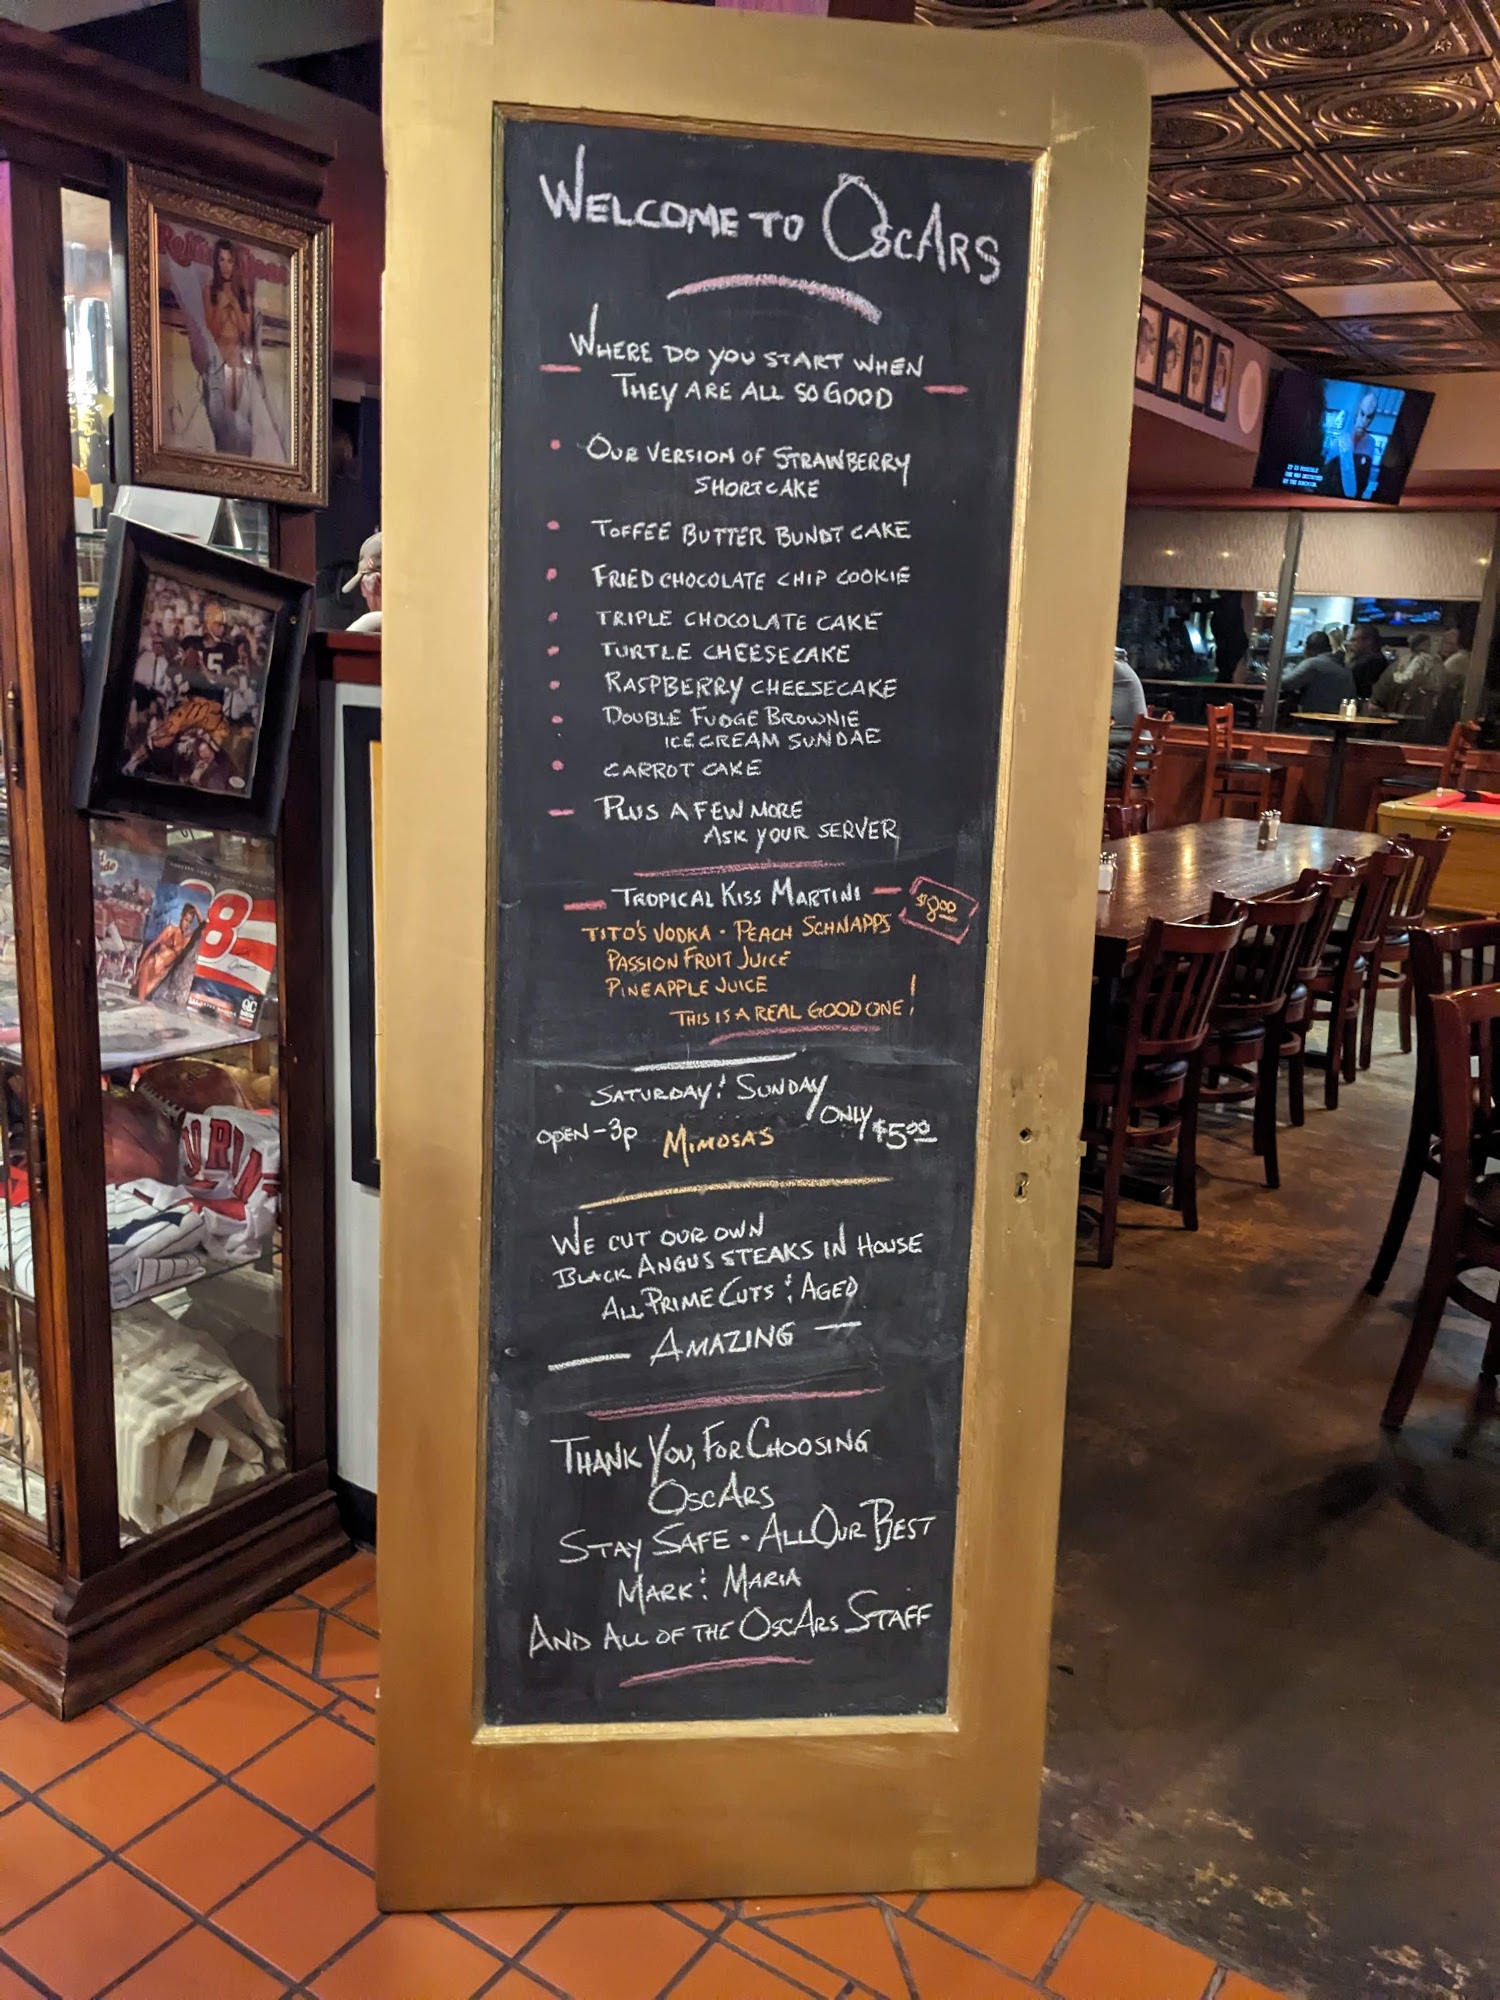 WELCOME TO OSCARS
WHERE DO YOU START WHEN
THEY ARE ALL SO GOOD
• OUR VERSION OF STRAWBERRY
SHORTCAKE
• TOFFEE BUTTER BUNDT CAKE
• FRIED CHOCOLATE CHIP COOKIE
• TRIPLE CHOCOLATE CAKE
• TURTLE CHEESECAKE
• RASPBERRY CHEESECAKE
• DOUBLE FUDGE BROWNIE
ICE CREAM SUNDAE
• CARROT CAKE
— PLUS A FEW MORE
ASK YOUR SERVER
— TROPICAL KISS MARTINI — $8.00
TITO'S VODKA • PEACH SCHNAPPS
PASSION FRUIT JUICE
PINEAPPLE JUICE
THIS IS A REAL GOOD ONE!
SATURDAY & SUNDAY
OPEN-3P MIMOSAS ONLY $5.00
WE CUT OUR OWN
BLACK ANGUS STEAKS IN HOUSE
ALL PRIME CUTS & AGED
— AMAZING —
THANK YOU, FOR CHOOSING
OSCARS
STAY SAFE • ALL OUR BEST
MARK & MARIA
AND ALL OF THE OSCARS STAFF
Rolling Stone
15
88